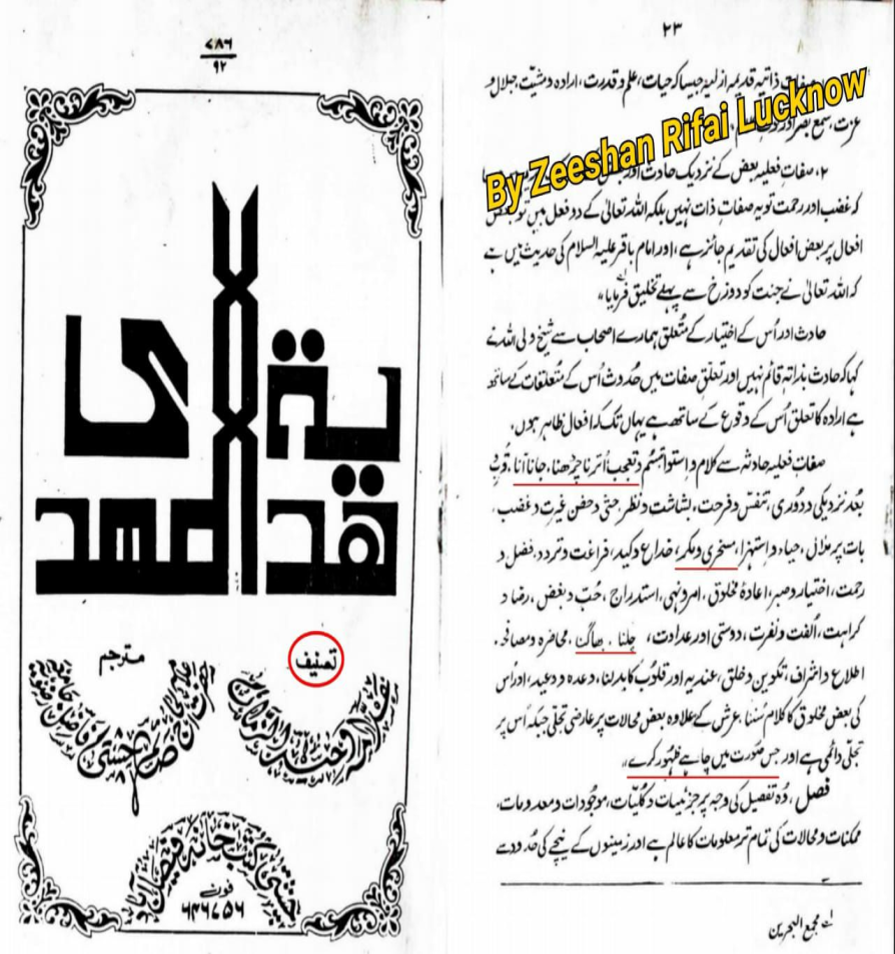 ۷۸۶
۹۲
هدیة
المهدی
تصنیف
مترجم
علامہ وحید الزمان
صائم چشتی
چشتی کتب خانہ فیصل آباد
فونے
۶۴۶۷۵۶
۲۳
صفات ذاتیہ قدیمہ ازلیہ جیسا کہ حیات، علم و قدرت، ارادہ و مشیّت، جلال و
عزت، سمع بصر اور
By Zeeshan Rifai Lucknow
۲، صفات فعلیہ بعض کے نزدیک حادث اور بعض
کہ غضب اور رحمت تو یہ صفات ذات نہیں بلکہ اللہ تعالیٰ کے دو فعل ہیں تو بعض
افعال پر بعض افعال کی تقدیم جائز ہے، اور امام باقر علیہ السلام کی حدیث میں ہے
کہ اللہ تعالیٰ نے جنت کو دوزخ سے پہلے تخلیق فرمایا؎
حادث اور اُس کے اختیار کے متعلق ہمارے اصحاب سے شیخ ولی اللہ نے
کہا کہ حادث بذاتہٖ قائم نہیں اور تعلق صفات میں حدوث اُس کے متعلقات کے ساتھ
ہے ارادہ کا تعلق اُس کے وقوع کے ساتھ ہے یہاں تک کہ افعال ظاہر ہوں،
صفات فعلیہ حادثہ سے کلام و استوا تبسّم و تعجب اُترنا چڑھنا، جانا آنا، قُرب
بُعد نزدیکی و دُوری، تنفّس و فرحت، بشاشت و نظر، حثی و حفن غیرت و غضب،
بات پر ملال، حیاء و استہزا، مسخری و مکر، خداع و کید، فراغت و تردد، فضل و
رحمت، اختیار و صبر، اعادۂ مخلوق، امر و نہی، استدراج، حُبّ و بغض، رضا و
کراہت، اُلفت و نفرت، دوستی اور عداوت، چلنا، بھاگنا، محاضرہ و مصافحہ،
اطلاع و اشراف، تکوین و خلق، عندیہ اور قلوب کا بدلنا، وعدہ و وعید، اور اُس
کی بعض مخلوق کا کلام سُننا، عرش کے علاوہ بعض محالات پر عارضی تجلّی جبکہ اُس پر
تجلّی دائمی ہے اور جس صورت میں چاہے ظہور کرے؎
فصل، وُہ تفصیل کی وجہ پر جزئیات و کلیّات، موجودات و معدومات،
ممکنات و محالات کی تمام تر معلومات کا عالم ہے اور زمینوں کے نیچے کی حدود سے
؎ مجمع البحرین